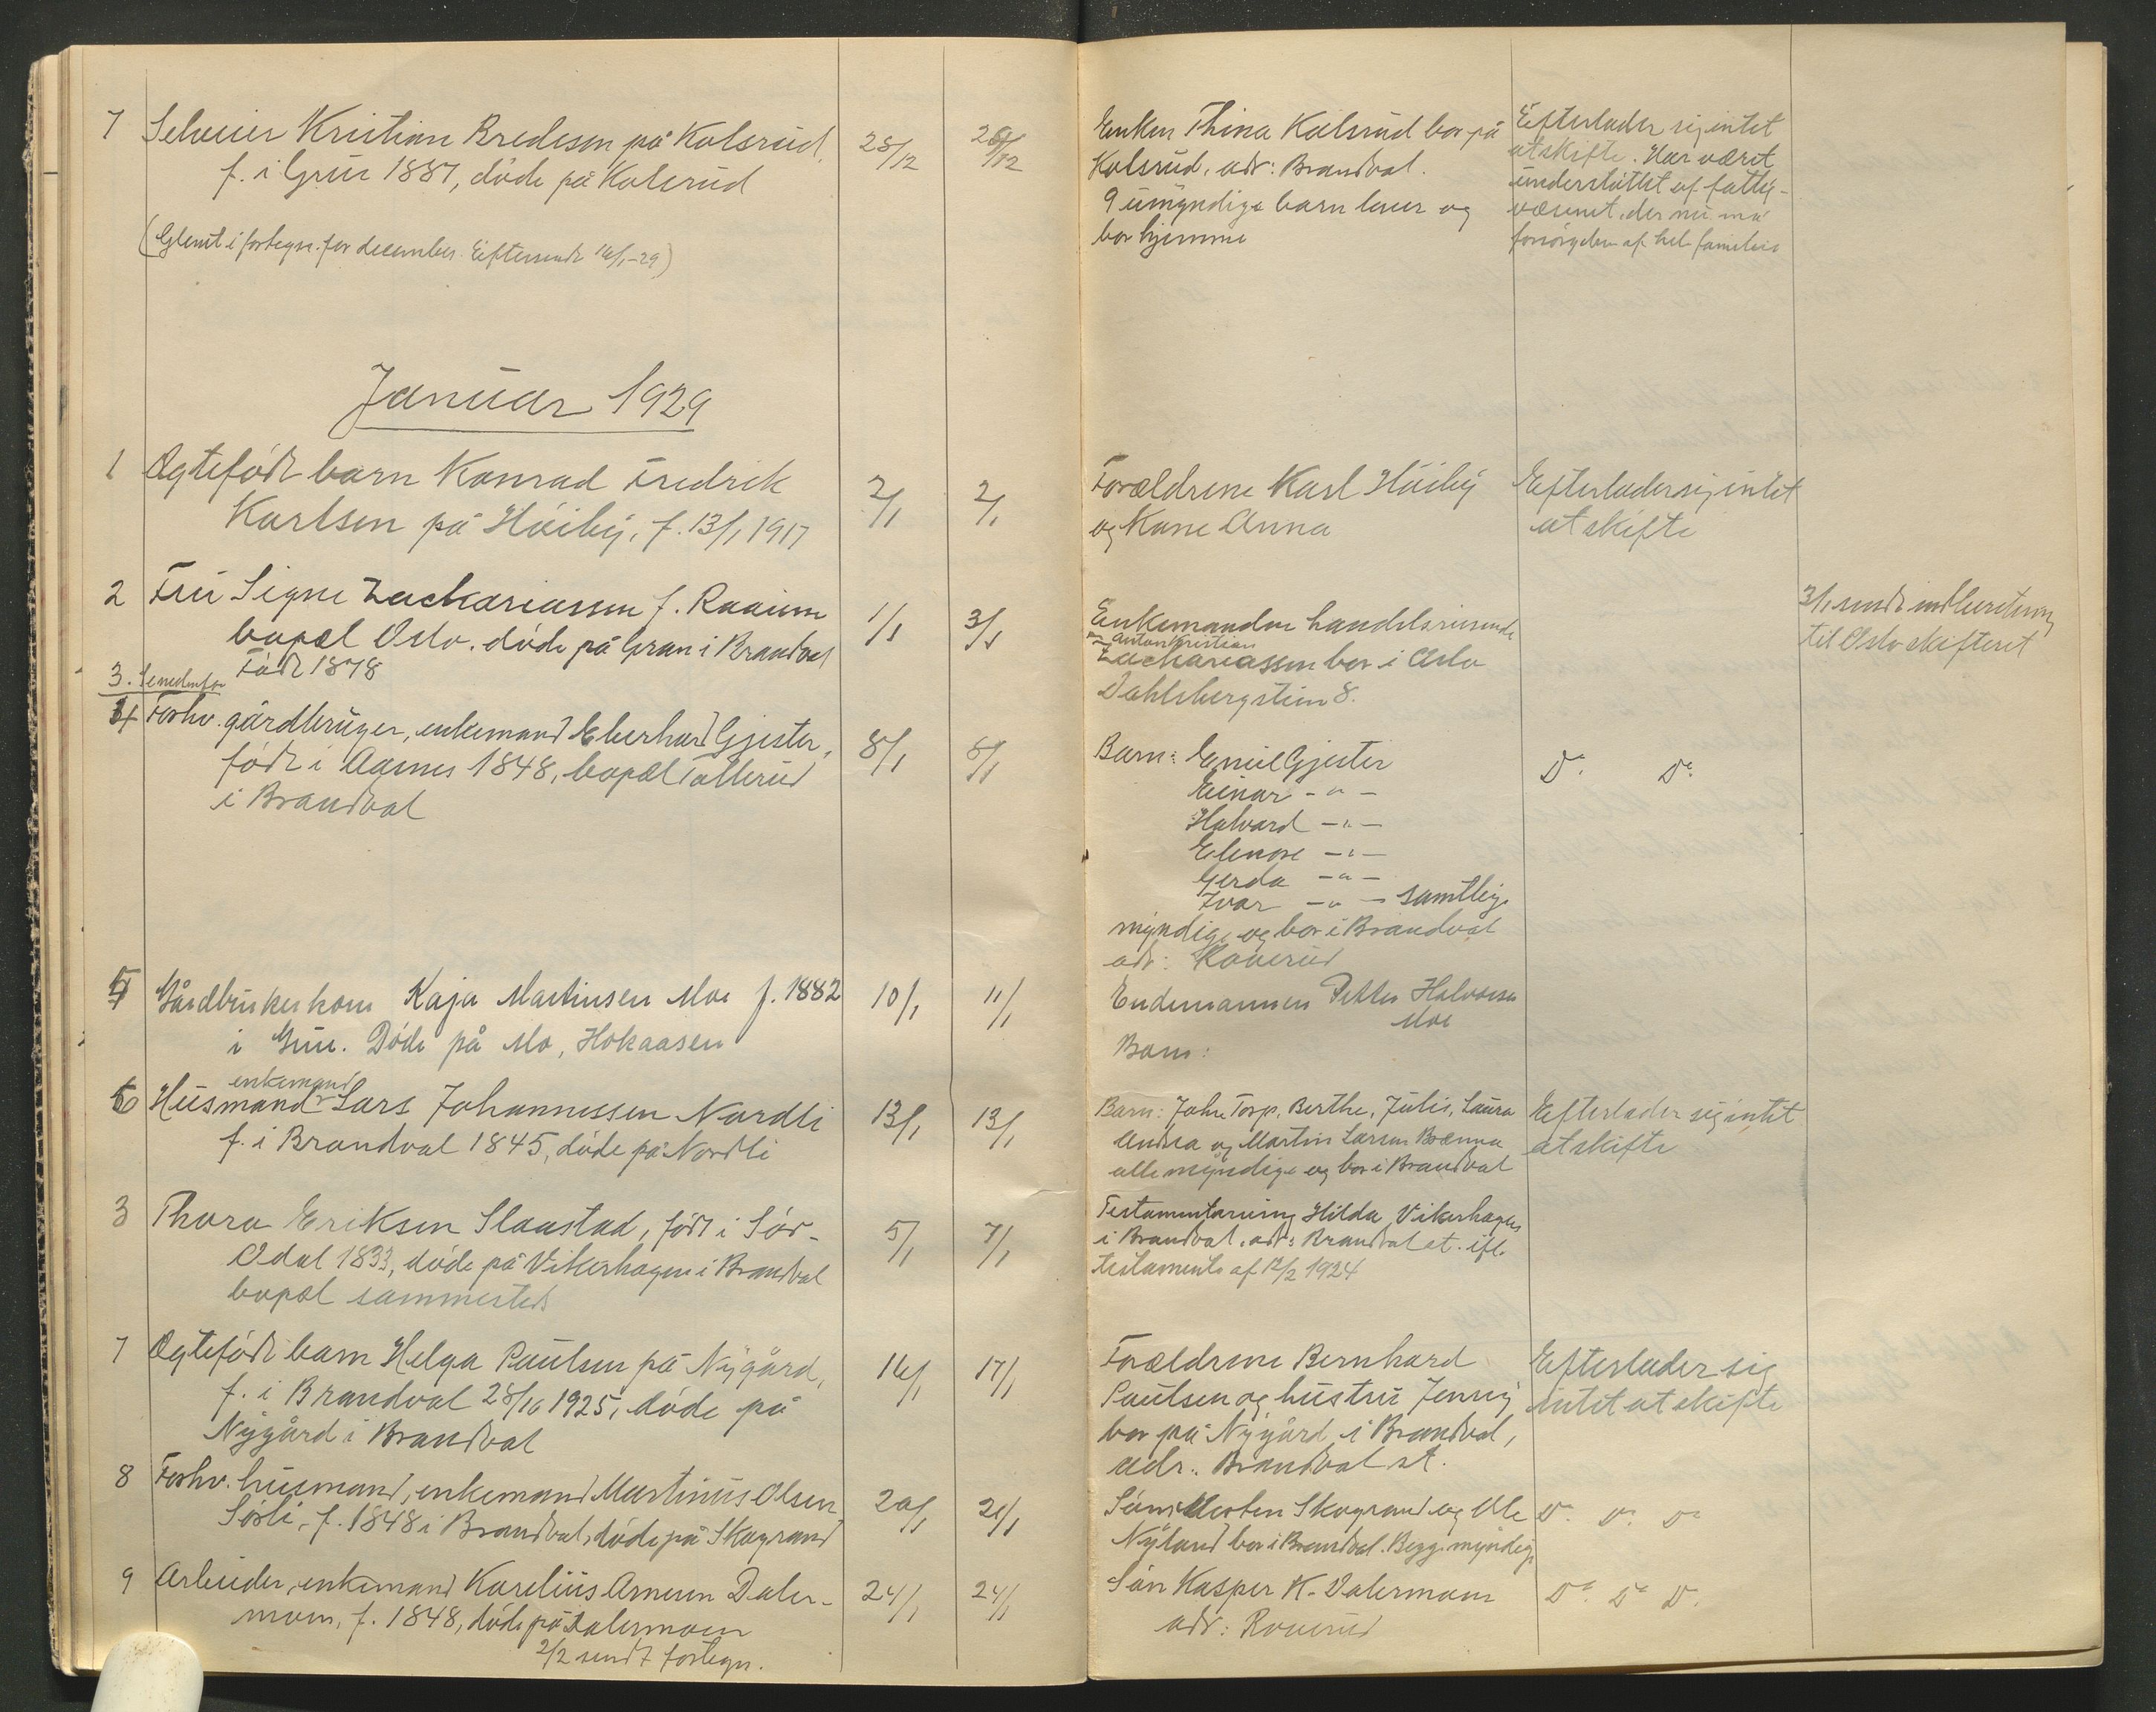 7 Selveier Kristian Bredesen på Kolsrud,
f. i Grue 1887, døde på Kolsrud
28/12
28/12
(Glemt i fortegn. for december. Eftersendt 16/1-29)
Enken Thina Kolsrud bor på
Kolsrud, adr: Brandval.
9 umyndige barn lever og
bor hjemme
Efterlader sig intet
at skifte. Har været
understøttet af fattig-
væsenet, der nu må
forsørgelsen af hele familien
Januar 1929
1 Ægtefødt barn Konrad Fredrik
Karlsen på Höiby, f. 13/1 1917
2/1
2/1
Forældrene Karl Höiby
og Kone Anna
Efterlader sig intet
at skifte
2 Fru Signe Zachariassen f. Raaum
bopæl Oslo. døde på Gran i Brandval
Født 1878
1/1
3/1
Enkemanden handelsreisende
Anton Kristian
Zachariassen bor i Oslo
Dahlsbergstien 8.
3/1 sendt indberetning
til Oslo skifteret
3. Se nedenfor
4 Forhv. gårdbruger, enkemand Eberhard Gjester,
født i Agnes 1848, bopæl Tollerud
i Brandval
8/1
8/1
Barn: Emil Gjester
Einar - " -
Halvard - " -
Elenore - " -
Gerda - " -
Ivar - " - samtlige
myndige og bor i Brandval
adr: Roverud
Do. Do.
5 Gårdbrukerkone Kaja Martinsen Moe f. 1882
i Grue. Döde på Mo, Hokaasen
10/1
11/1
Endemannen Petter Halvorsen
Moe
Barn:
enkemand
6 Husmand Lars Johannessen Nordli
f. i Brandval 1845, døde på Nordli
13/1
13/1
Barn: John Torp, Berthe, Julis, Laura
Andrea og Martin Larsen Brænna
alle myndige og bor i Brandval
Efterlader sig intet
at skifte
3 Thora Eriksen Slaastad, født i Sör-
Odal 1833, døde på Vikerhagen i Brandval
bopæl sammesteds
5/1
7/1
Testamentarving Hilda Vikerhagen
i Brandval, adr: Brandval st. ifl.
testamente af 12/2 1924
7 Ægtefødt barn Helga Paulsen på Nygård,
f. i Brandval 28/10 1925, døde på
Nygård i Brandval
16/1
17/1
Forældrene Bernhard
Paulsen og hustru Jenny
bor på Nygård i Brandval,
adr.: Brandval st.
Efterlader sig
intet at skifte
8 Forhv. husmand, enkemand Martinius Olsen
Sörli, f. 1848 i Brandval, døde på Skogrand
20/1
21/1
Sönner Morten Skogrand og Ole
Nyland bor i Brandval. Begge myndige
Do. Do. Do.
9 Arbeider, enkemand Karelius Arnesen Daler-
moen, f. 1848, døde på Dalermoen
24/1
24/1
Sön Kasper K. Dalermoen
adr: Roverud
Do. Do. Do.
2/2 sendt fortegn.